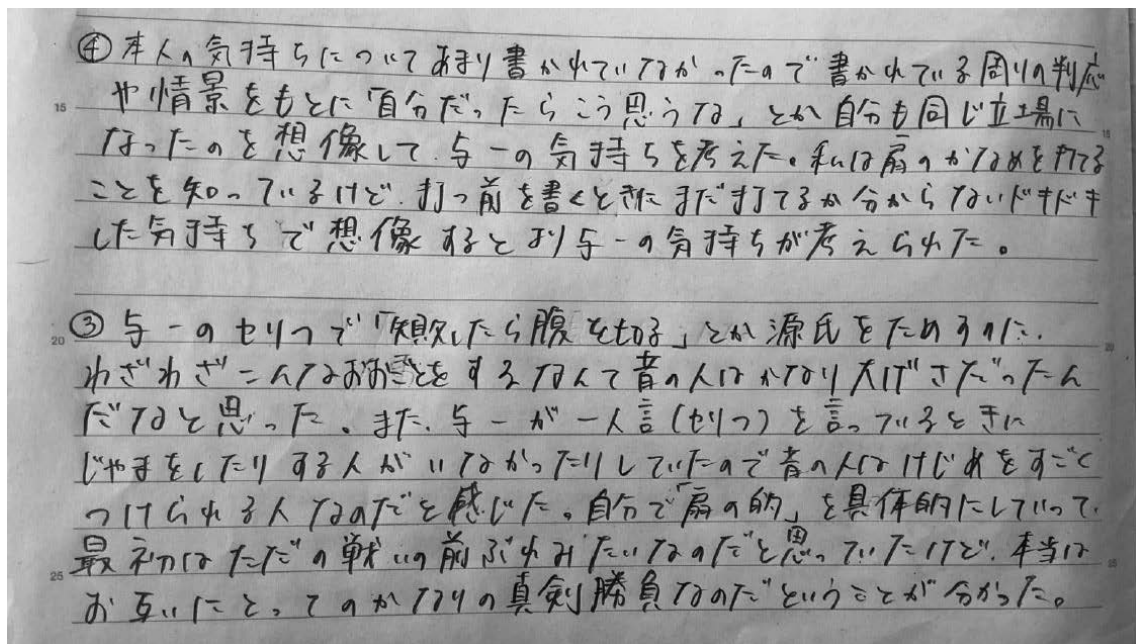 ④ 本人の気持ちについてあまり書かれていなかったので書かれている周りの判応
15 や情景をもとに「自分だったらこう思うな」とか自分も同じ立場に 15
なったのを想像して、与一の気持ちを考えた。私は扇のかなめを打てる
ことを知っているけど、打つ前を書くときはまだ打てるか分からないドキドキ
した気持ちで想像するとより与一の気持ちが考えられた。
20 ③ 与一のセリフで「失敗したら腹を切る」とか源氏をためすのに、 20
わざわざこんなおおごとをするなんて昔の人はかなり大げさだったん
だなと思った。また、与一が一人言(セリフ)を言っているときに
じゃまをしたりする人がいなかったりしていたので昔の人はけじめをすごく
つけられる人なのだと感じた。自分で「扇の的」を具体的にしていって、
最初はただの戦いの前ぶれみたいなのだと思っていたけど、本当は
25 お互いにとってのかなりの真剣勝負なのだということが分かった。